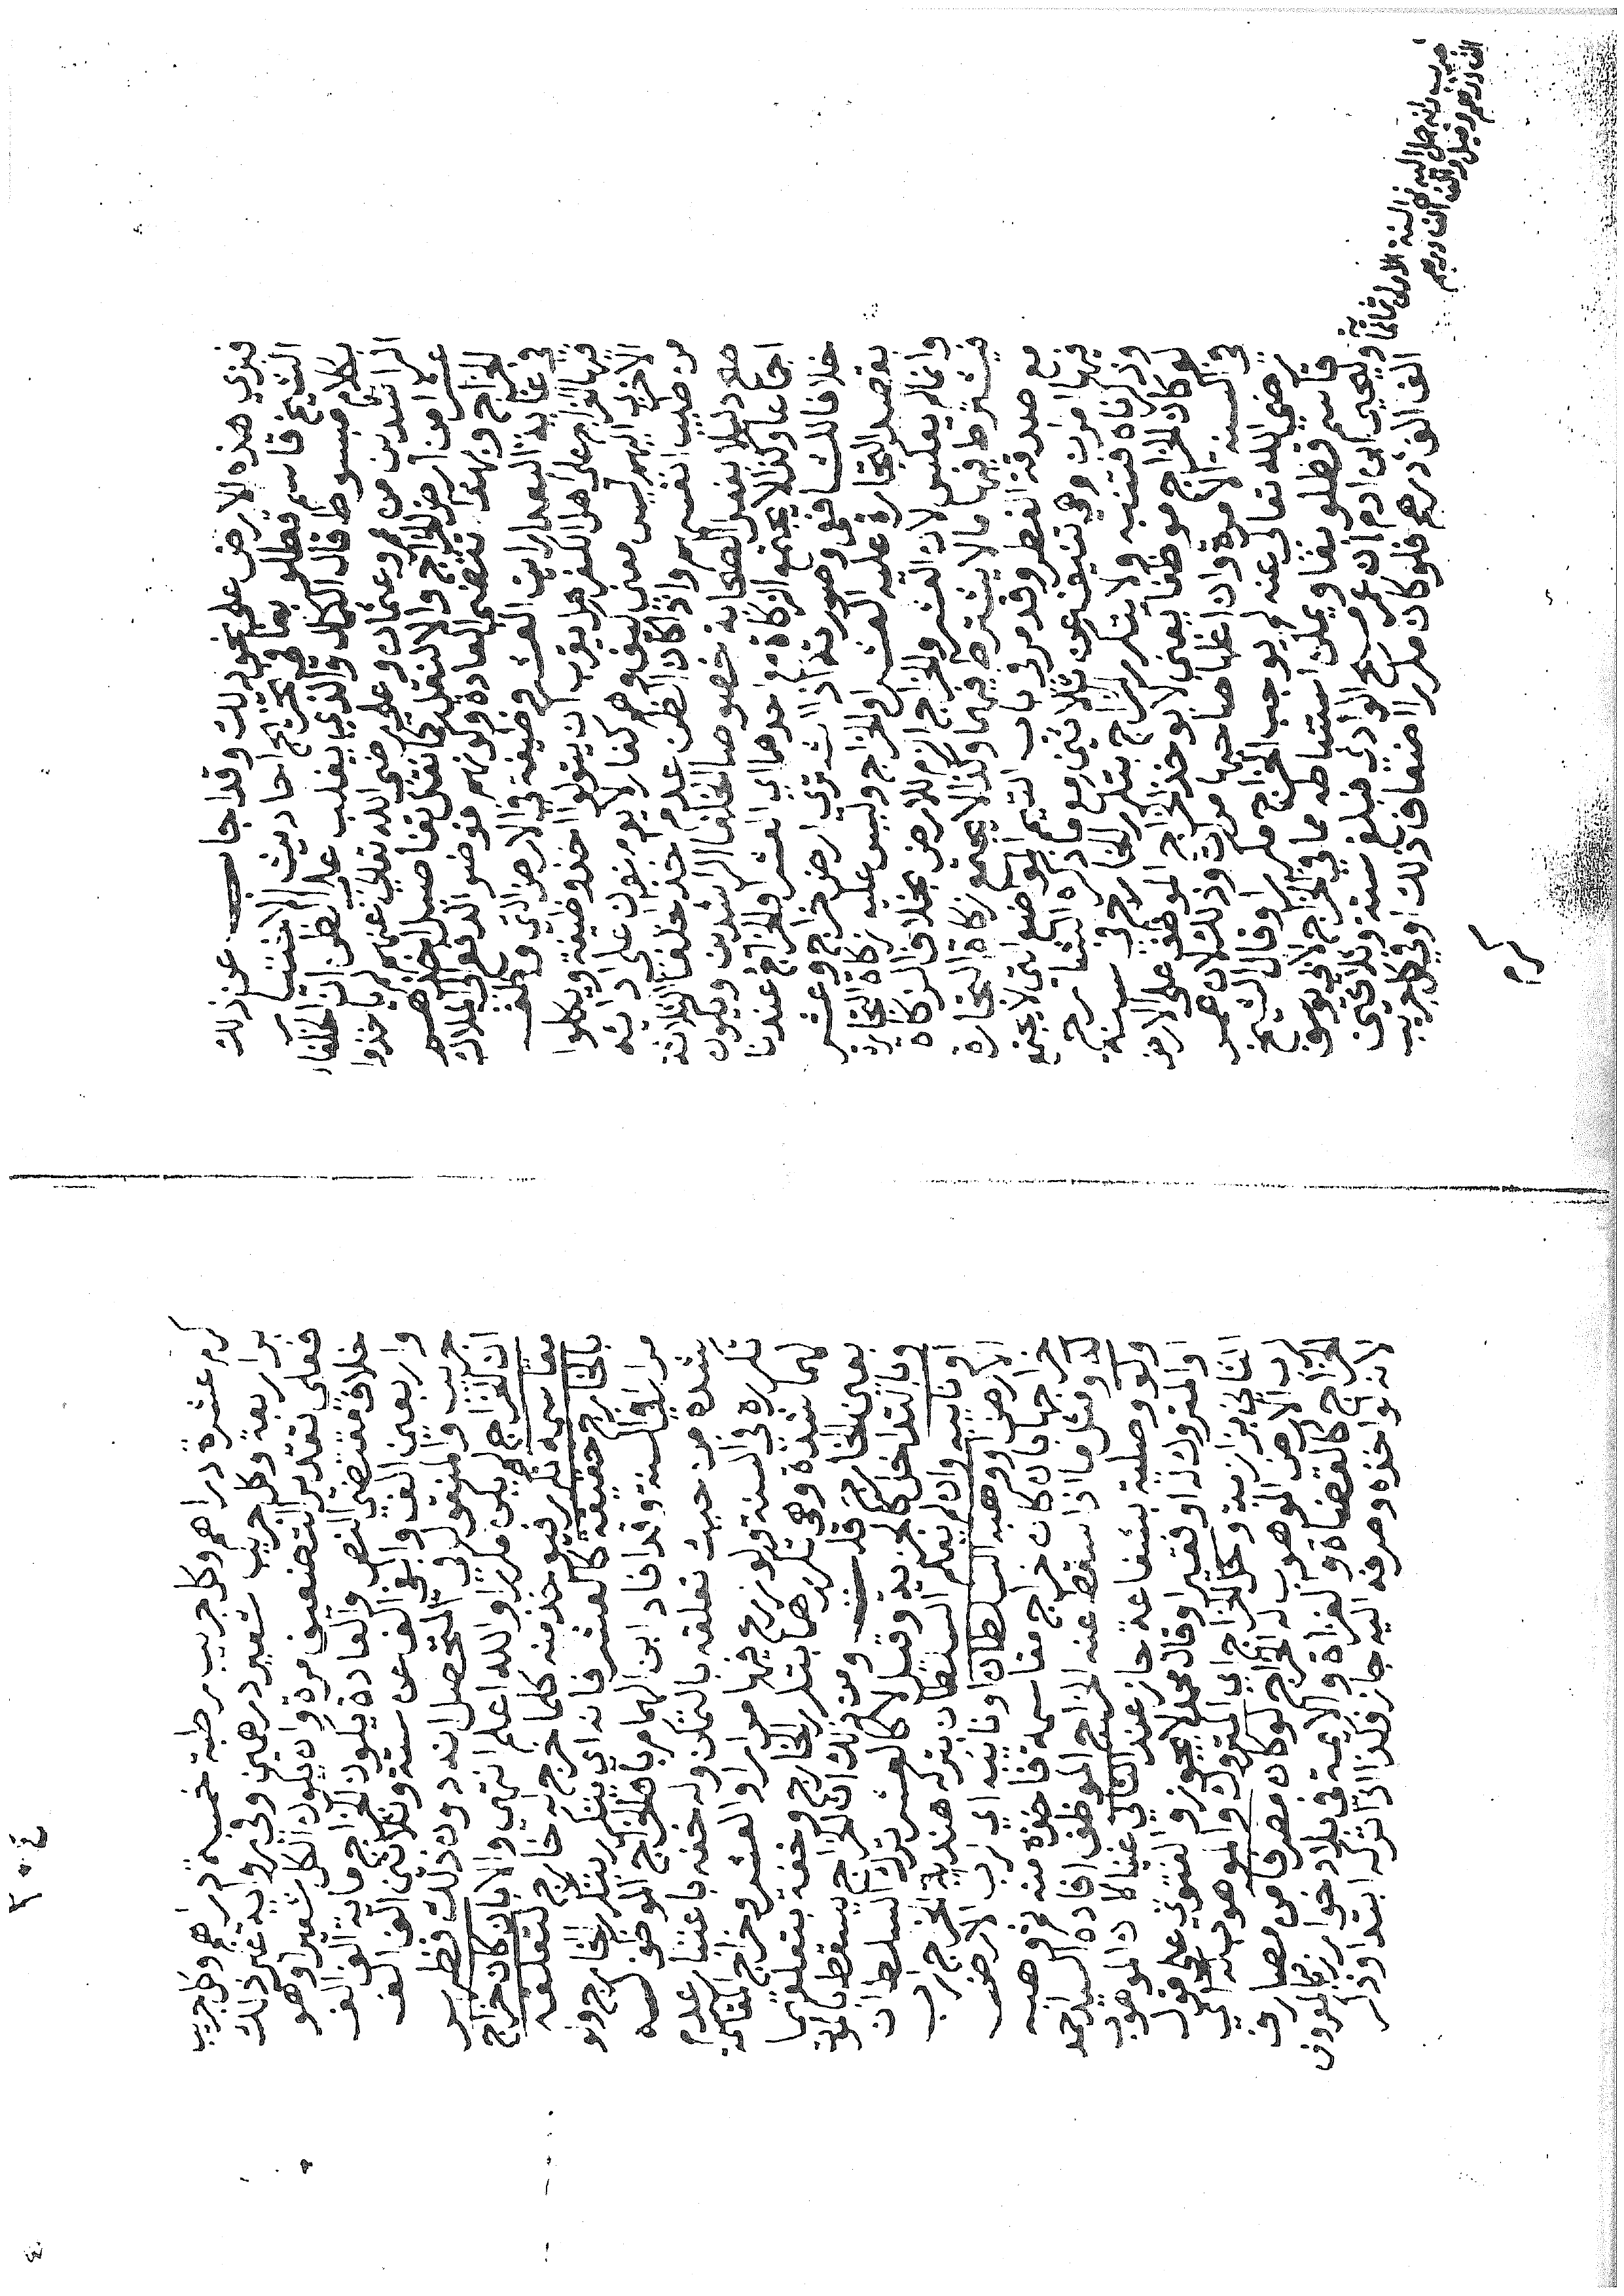 فنري هذه الارض على نحو ذلك وقد اجاب عن ذلك
الشيخ قاسم قطلوبغا في تخريج احاديث الاختيار
بكلام مبسوط قال الكمال والذي يغلب على الظن ان الخلفاء
الراشدين من عمر وعثمان وعلي رضي الله تعالى عنهم لم ياخذوا
عشرا من ارض الخراج والا لنقل كما نقل تفاصيل اخذهم
الخراج وبهذا تقتضي العادة وكونهم فوضوا الدفع الى الملاك
في غاية البعد ارايت العشر وظيفة في الارض التي وظف
فيها الخراج على اهل الكفر هل يقرب ان يتولوا اخذ وظيفة ويكلوا
الاخرى اليهم ليس معنى وهم كفار لا يومنون على ادايه
من طيب انفسهم واذا كان الظن عدم اخذ الخلفا الثلاثة
صح دليلا بفعل الصحابة خصوصا الخلفا الراشدين ويكون
اجماعا وكذا لا يجتمع الزكاة مع احدهما اي العشر والخراج عندنا
خلافا للشافعي وصورته اذا اشتري ارض خراج وعشر
بقصد التجارة عليه العشر او الخراج وليس عليه زكاة التجارة
وانما لم يعكس لان العشر والخراج الزم للارض بخلاف الزكاة
فيشترط فيها ما لا يشترط فيهما وكذا لا يجتمع زكاة التجارة
مع صدقة الفطر وقد مر في باب التيمم المواضع التي لا يجتمع
فيها امران وهي تنيف عن ثلاثين مع ما ذكره الشارح
وذكرناه فتنبه ولا يتكرر الخراج بتكرر الخارج في سنة
لو كان الخراج موظفا يعني لا يوخذ الخراج الموظف على الارض
في السنة الا مرة وان اغلها صاحبها مرات وذلك لان عمر
رضي الله تعالى عنه لم يوجب الخراج مكررا وقال الشيخ
قاسم قطلوبغا ويمكن استنباطه مما في الخراج لابي يوسف
وليحيى ابن ادم ان عمر مسح الوادي فبلغ ستة وثلاثين
الف الف درهم فلو كان مكررا ضعفا في ذلك او في كل جريب
جريب وانه جبي اليه في السنة الاولى
الف الف درهم وقيل الف الف درهم
كرم
كرم عشرة دراهم وكل جريب رطبة خمسة دراهم وكل جريب
بر اربعة وكل جريب شعير درهمين وفي رواية غير ذلك
فعلى تقدير التضعيف مرة وان يكون الكل شعيرا وهو
خلاف مقتضى النص والعادة يكون الخراج ماية الف الف
واربعين الف والفي الف عن ستة وثلاثين الف الف
جريب والمنقول في المتحصل انه دون ذلك فظهر
ان الخراج لم يكن مكررا والله اعلم انتهي والا بان كان خراج
مقاسمة تكرر فيوخذ منه كلما خرج له خارج لتعلقه
بالخارج حقيقة كالعشر فانه اي يتكرر بتكرر الخارج ولو
مرارا في السنة وقد افاد ابن الهمام بان الخراج الموظف له
شدة من حيث تعلقه بالتمكن وله خفه باعتبار عدم
تكرره في السنة ولو زرع فيها مرارا والعشر وخراج المقاسمة
لهما شدة وهي تكررهما بتكرر الخارج وخفة بتعلقهما
بعين الخارج قلت ومن ذلك ان الخراج يسقط بالموت
وبالتداخل كالجزية وقيل لا كالعشر ترك السلطان
او نايبه وان لم يعلم السلطان بتركه هندية الخراج لرب
الارض او وهبه السلطان او نايبه اي لرب الارض
خراجها بان كان خراج مقاسمة فاخذه منه ثم وهبه
له ومثل ما اذا اسقط عنه الخراج الموظف افاده السيد احمد
ولو وصلية بشفاعة جاز عند الثاني غنيا كان الموهوب
والمتروك له او فقيرا وقال محمد لا يجوز والفتوى على قول
الثاني بزازية وحل الخراج اي المتروك والموهوب له اي
لرب الارض الموهوب له الخراج لو كان مصرفا من مصارف
الخراج كالقضاة والغزاة والايمة في بلاد خوارزم المعروف
لانه لو اخذه وصرفه اليه جاز فكذا اذا تركه ابتدا وذكر